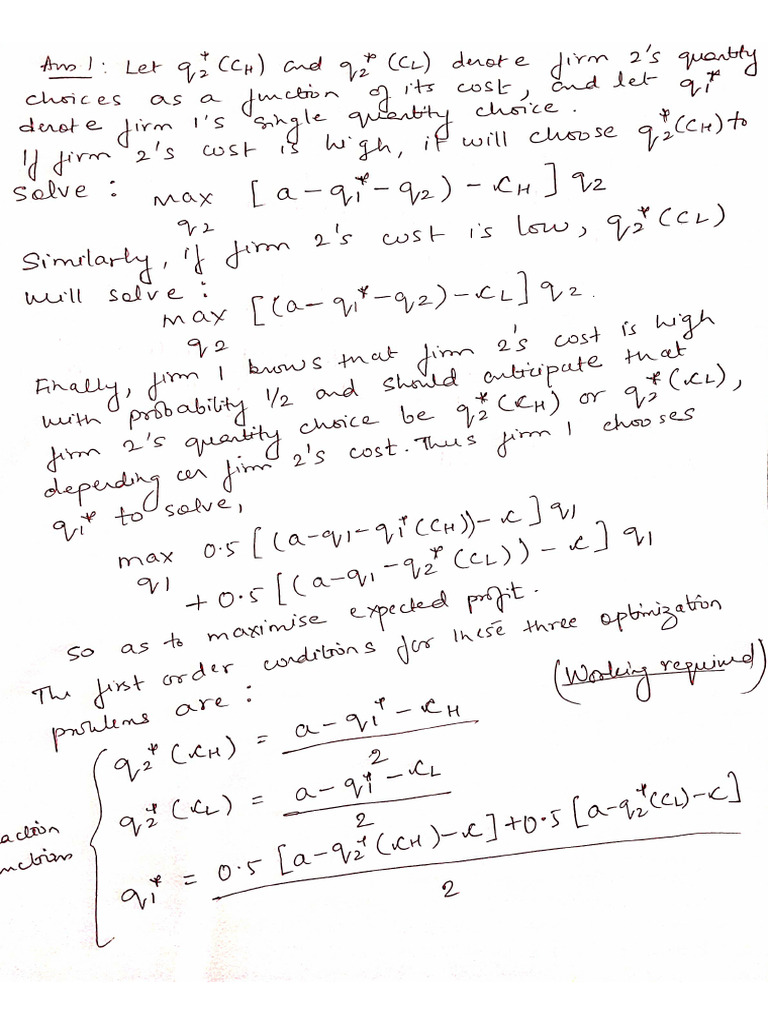 Ans 1: Let q2*(CH) and q2*(CL) denote firm 2's quantity
choices as a function of its cost, and let q1*
denote firm 1's single quantity choice.
If firm 2's cost is high, it will choose q2*(CH) to
solve: max [a-q1*-q2) - cH] q2
q2
Similarly, if firm 2's cost is low, q2*(CL)
will solve:
max [(a-q1*-q2)-cL] q2.
q2
Finally, firm 1 knows that firm 2's cost is high
with probability 1/2 and should anticipate that
firm 2's quantity choice be q2*(cH) or q2*(cL),
depending on firm 2's cost. Thus firm 1 chooses
q1* to solve,
max 0.5 [(a-q1-q1*(CH))-c] q1
q1 + 0.5 [(a-q1-q2*(CL))-c] q1
So as to maximise expected profit.
The first order conditions for these three optimization
problems are: (Working required)
q2*(cH) = a-q1*-cH
2
q2*(cL) = a-q1*-cL
2
action
nctions
q1* = 0.5 [a-q2*(cH)-c]+0.5 [a-q2*(CL)-c]
2